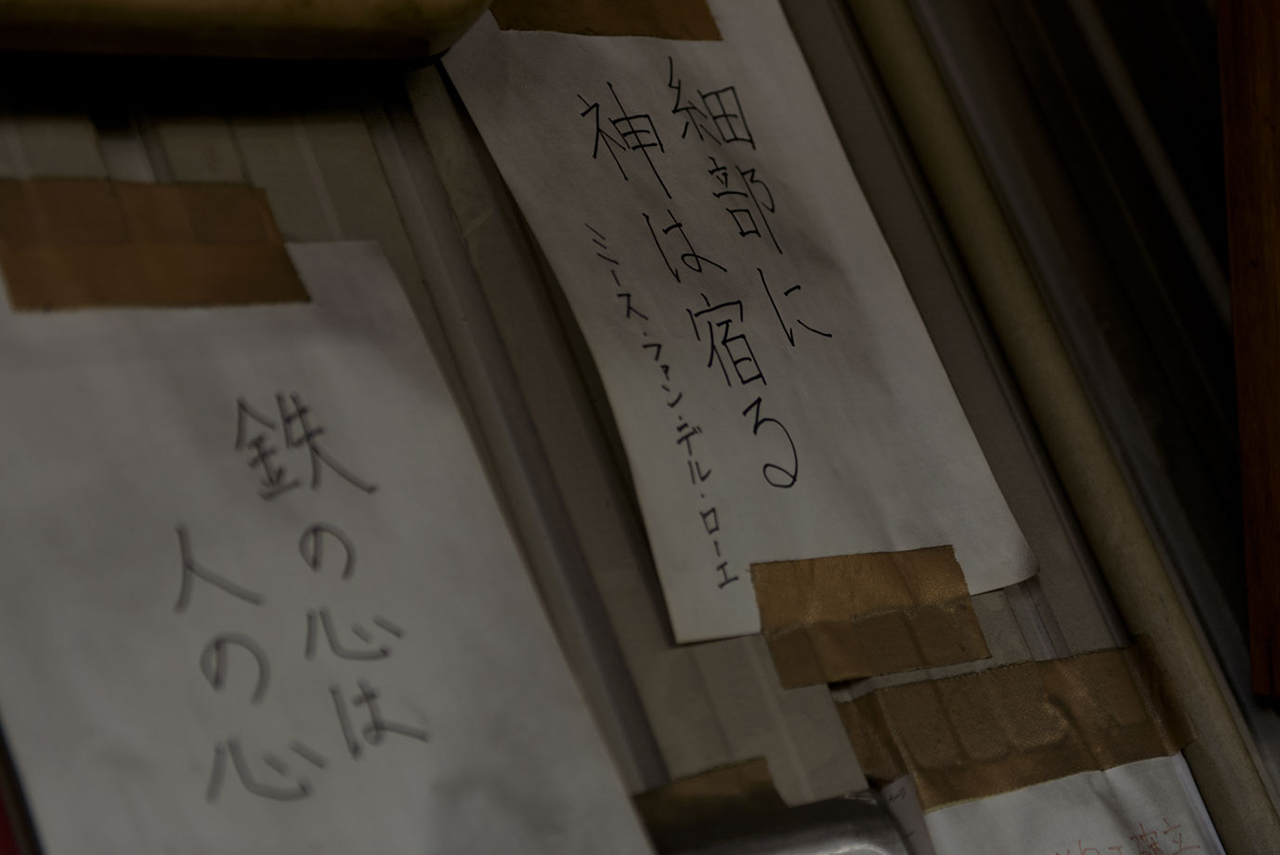 細部に
神は宿る
ミース・ファン・デル・ローエ
鉄の心は
人の心